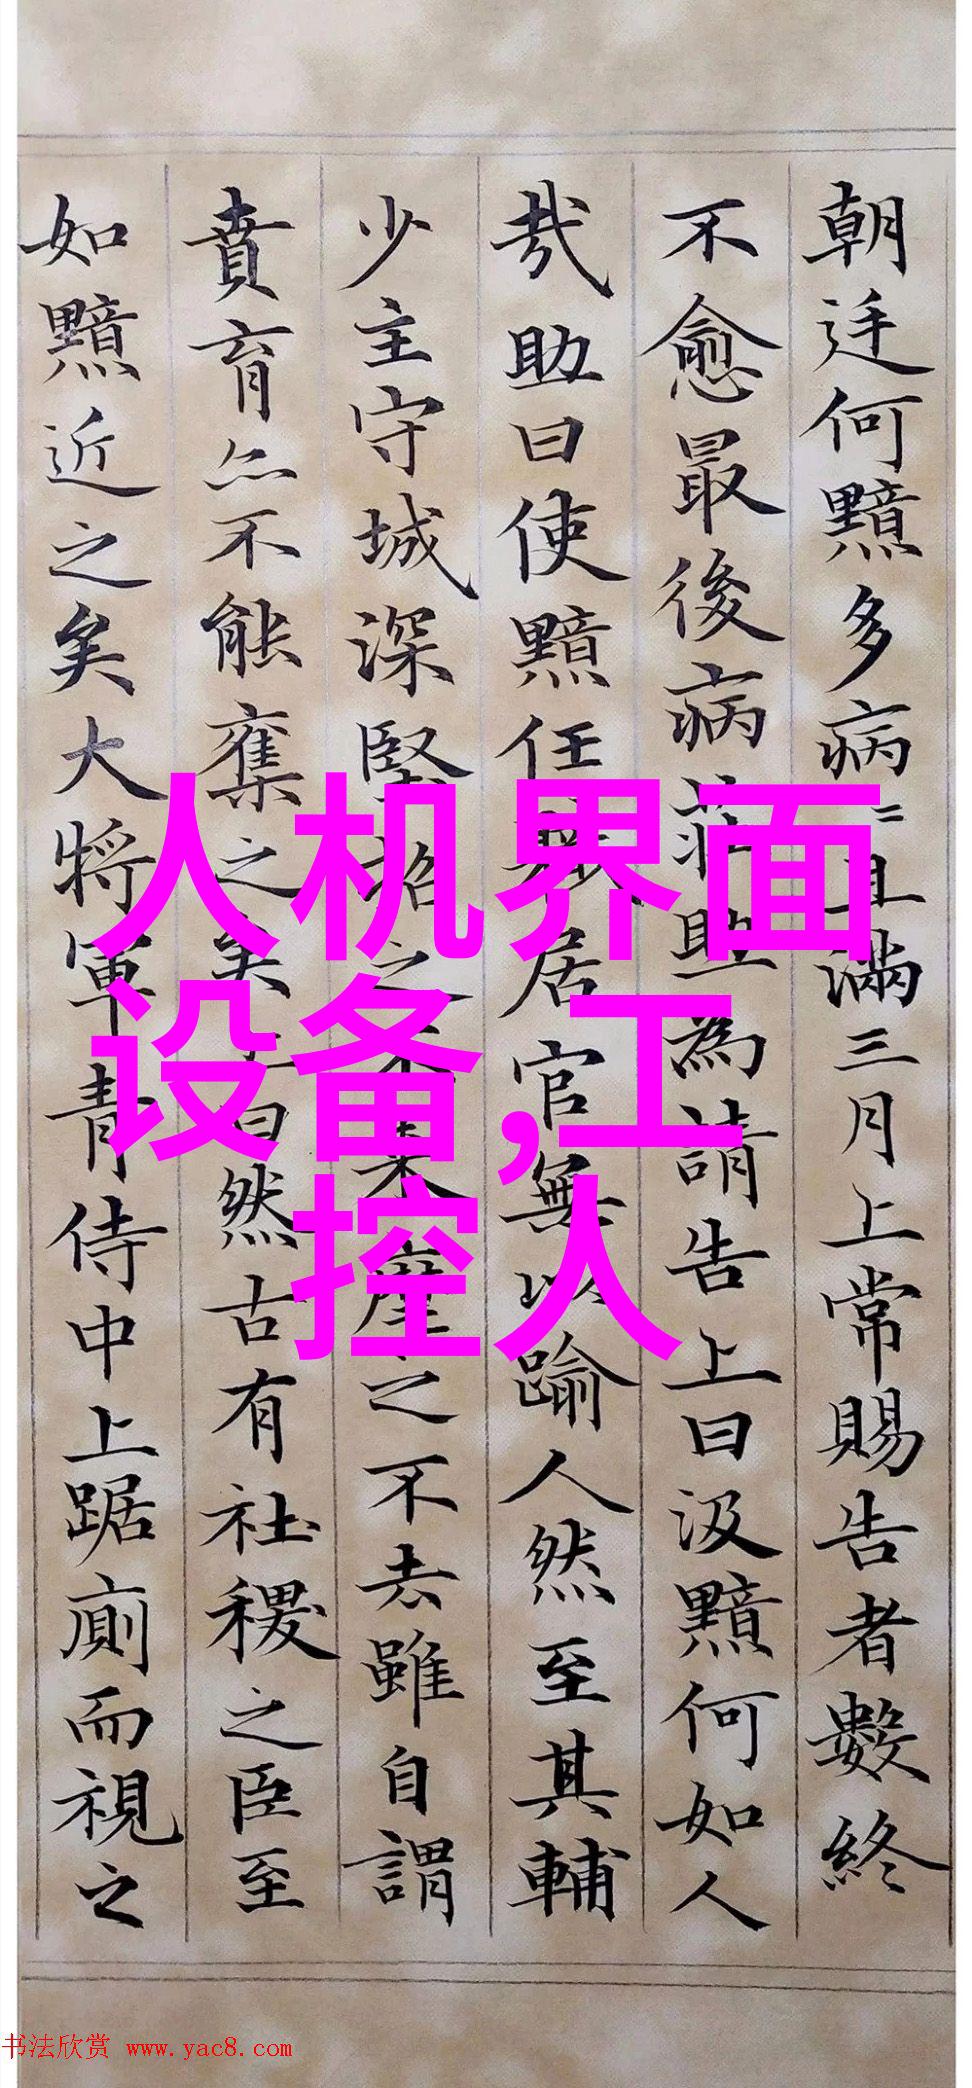 朝廷何黯多病〻且滿三月上常賜告者數終
不愈最後病莊助為請告上曰汲黯何如人
哉助曰使黯任職居官無以踰人然至其輔
少主守城深堅招之不來麾之不去雖自謂
賁育亦不能奪之矣上曰然古有社稷之臣至
如黯近之矣大將軍青侍中上踞廁而視之
人机界面
设备,工
控人
书法欣赏 www.yac8.com